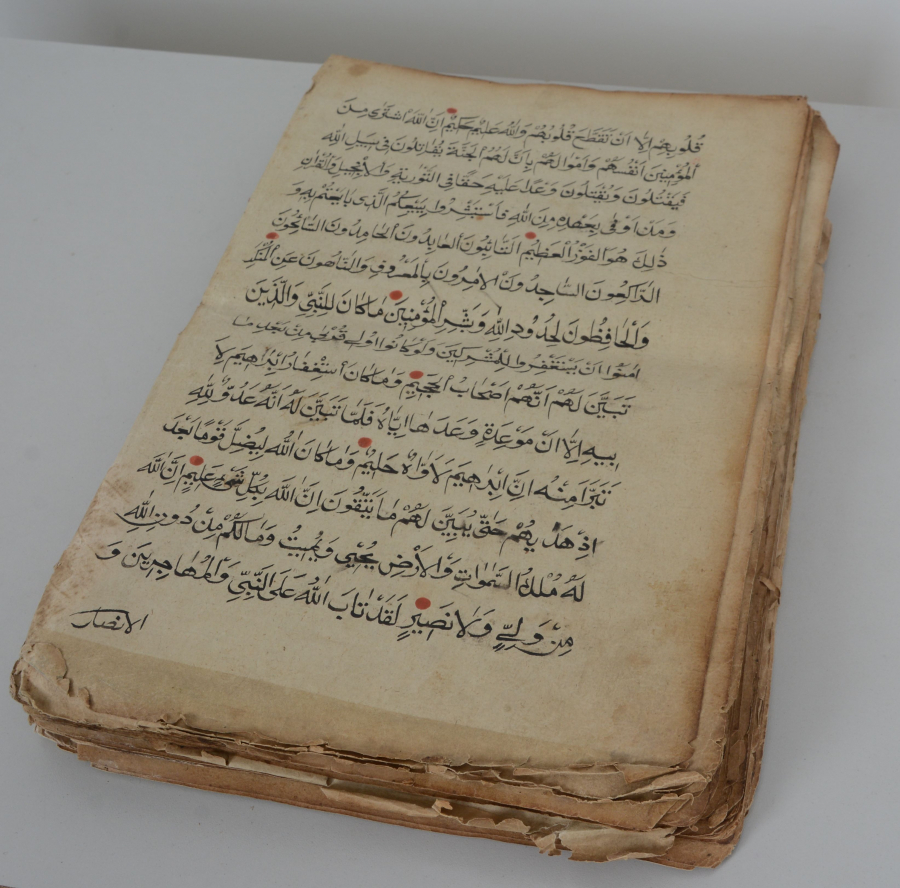 قُلُوبِهِمْ إِلَّا أَنْ تَقَطَّعَ قُلُوبُهُمْ وَاللهُ عَلِيمٌ حَكِيمٌ اِنَّ اللهَ اشْتَرٰى مِنَ
الْمُؤْمِنِينَ اَنْفُسَهُمْ وَاَمْوَالَهُمْ بِاَنَّ لَهُمُ الْجَنَّةَ يُقَاتِلُونَ فِى سَبِيلِ اللهِ
فَيَقْتُلُونَ وَيُقْتَلُونَ وَعْدًا عَلَيْهِ حَقًّا فِى التَّوْرٰيةِ وَالْاِنْجِيلِ وَالْقُرْاٰنِ
وَمَنْ اَوْفٰى بِعَهْدِهِ مِنَ اللهِ فَاسْتَبْشِرُوا بِبَيْعِكُمُ الَّذِى بَايَعْتُمْ بِهِ وَ
ذٰلِكَ هُوَ الْفَوْزُ الْعَظِيمُ اَلتَّائِبُونَ الْعَابِدُونَ الْحَامِدُونَ السَّائِحُونَ
الرَّاكِعُونَ السَّاجِدُونَ الْاٰمِرُونَ بِالْمَعْرُوفِ وَالنَّاهُونَ عَنِ الْمُنْكَرِ
وَالْحَافِظُونَ لِحُدُودِ اللهِ وَبَشِّرِ الْمُؤْمِنِينَ مَا كَانَ لِلنَّبِيِّ وَالَّذِينَ
اٰمَنُوا اَنْ يَسْتَغْفِرُوا لِلْمُشْرِكِينَ وَلَوْ كَانُوا اُولِى قُرْبٰى مِنْ بَعْدِ مَا
تَبَيَّنَ لَهُمْ اَنَّهُمْ اَصْحَابُ الْجَحِيمِ وَمَا كَانَ اسْتِغْفَارُ اِبْرٰاهِيمَ لِاَ
بِيهِ اِلَّا عَنْ مَوْعِدَةٍ وَعَدَهَا اِيَّاهُ فَلَمَّا تَبَيَّنَ لَهُ اَنَّهُ عَدُوٌّ لِلّٰهِ
تَبَرَّاَ مِنْهُ اِنَّ اِبْرٰاهِيمَ لَاَوَّاهٌ حَلِيمٌ وَمَا كَانَ اللهُ لِيُضِلَّ قَوْمًا بَعْدَ
اِذْ هَدٰيهُمْ حَتّٰى يُبَيِّنَ لَهُمْ مَا يَتَّقُونَ اِنَّ اللهَ بِكُلِّ شَيْءٍ عَلِيمٌ اِنَّ اللهَ
لَهُ مُلْكُ السَّمٰوَاتِ وَالْاَرْضِ يُحْيِى وَيُمِيتُ وَمَا لَكُمْ مِنْ دُونِ اللهِ
مِنْ وَلِيٍّ وَلَا نَصِيرٍ لَقَدْ تَابَ اللهُ عَلَى النَّبِيِّ وَالْمُهَاجِرِينَ وَ
الانصار